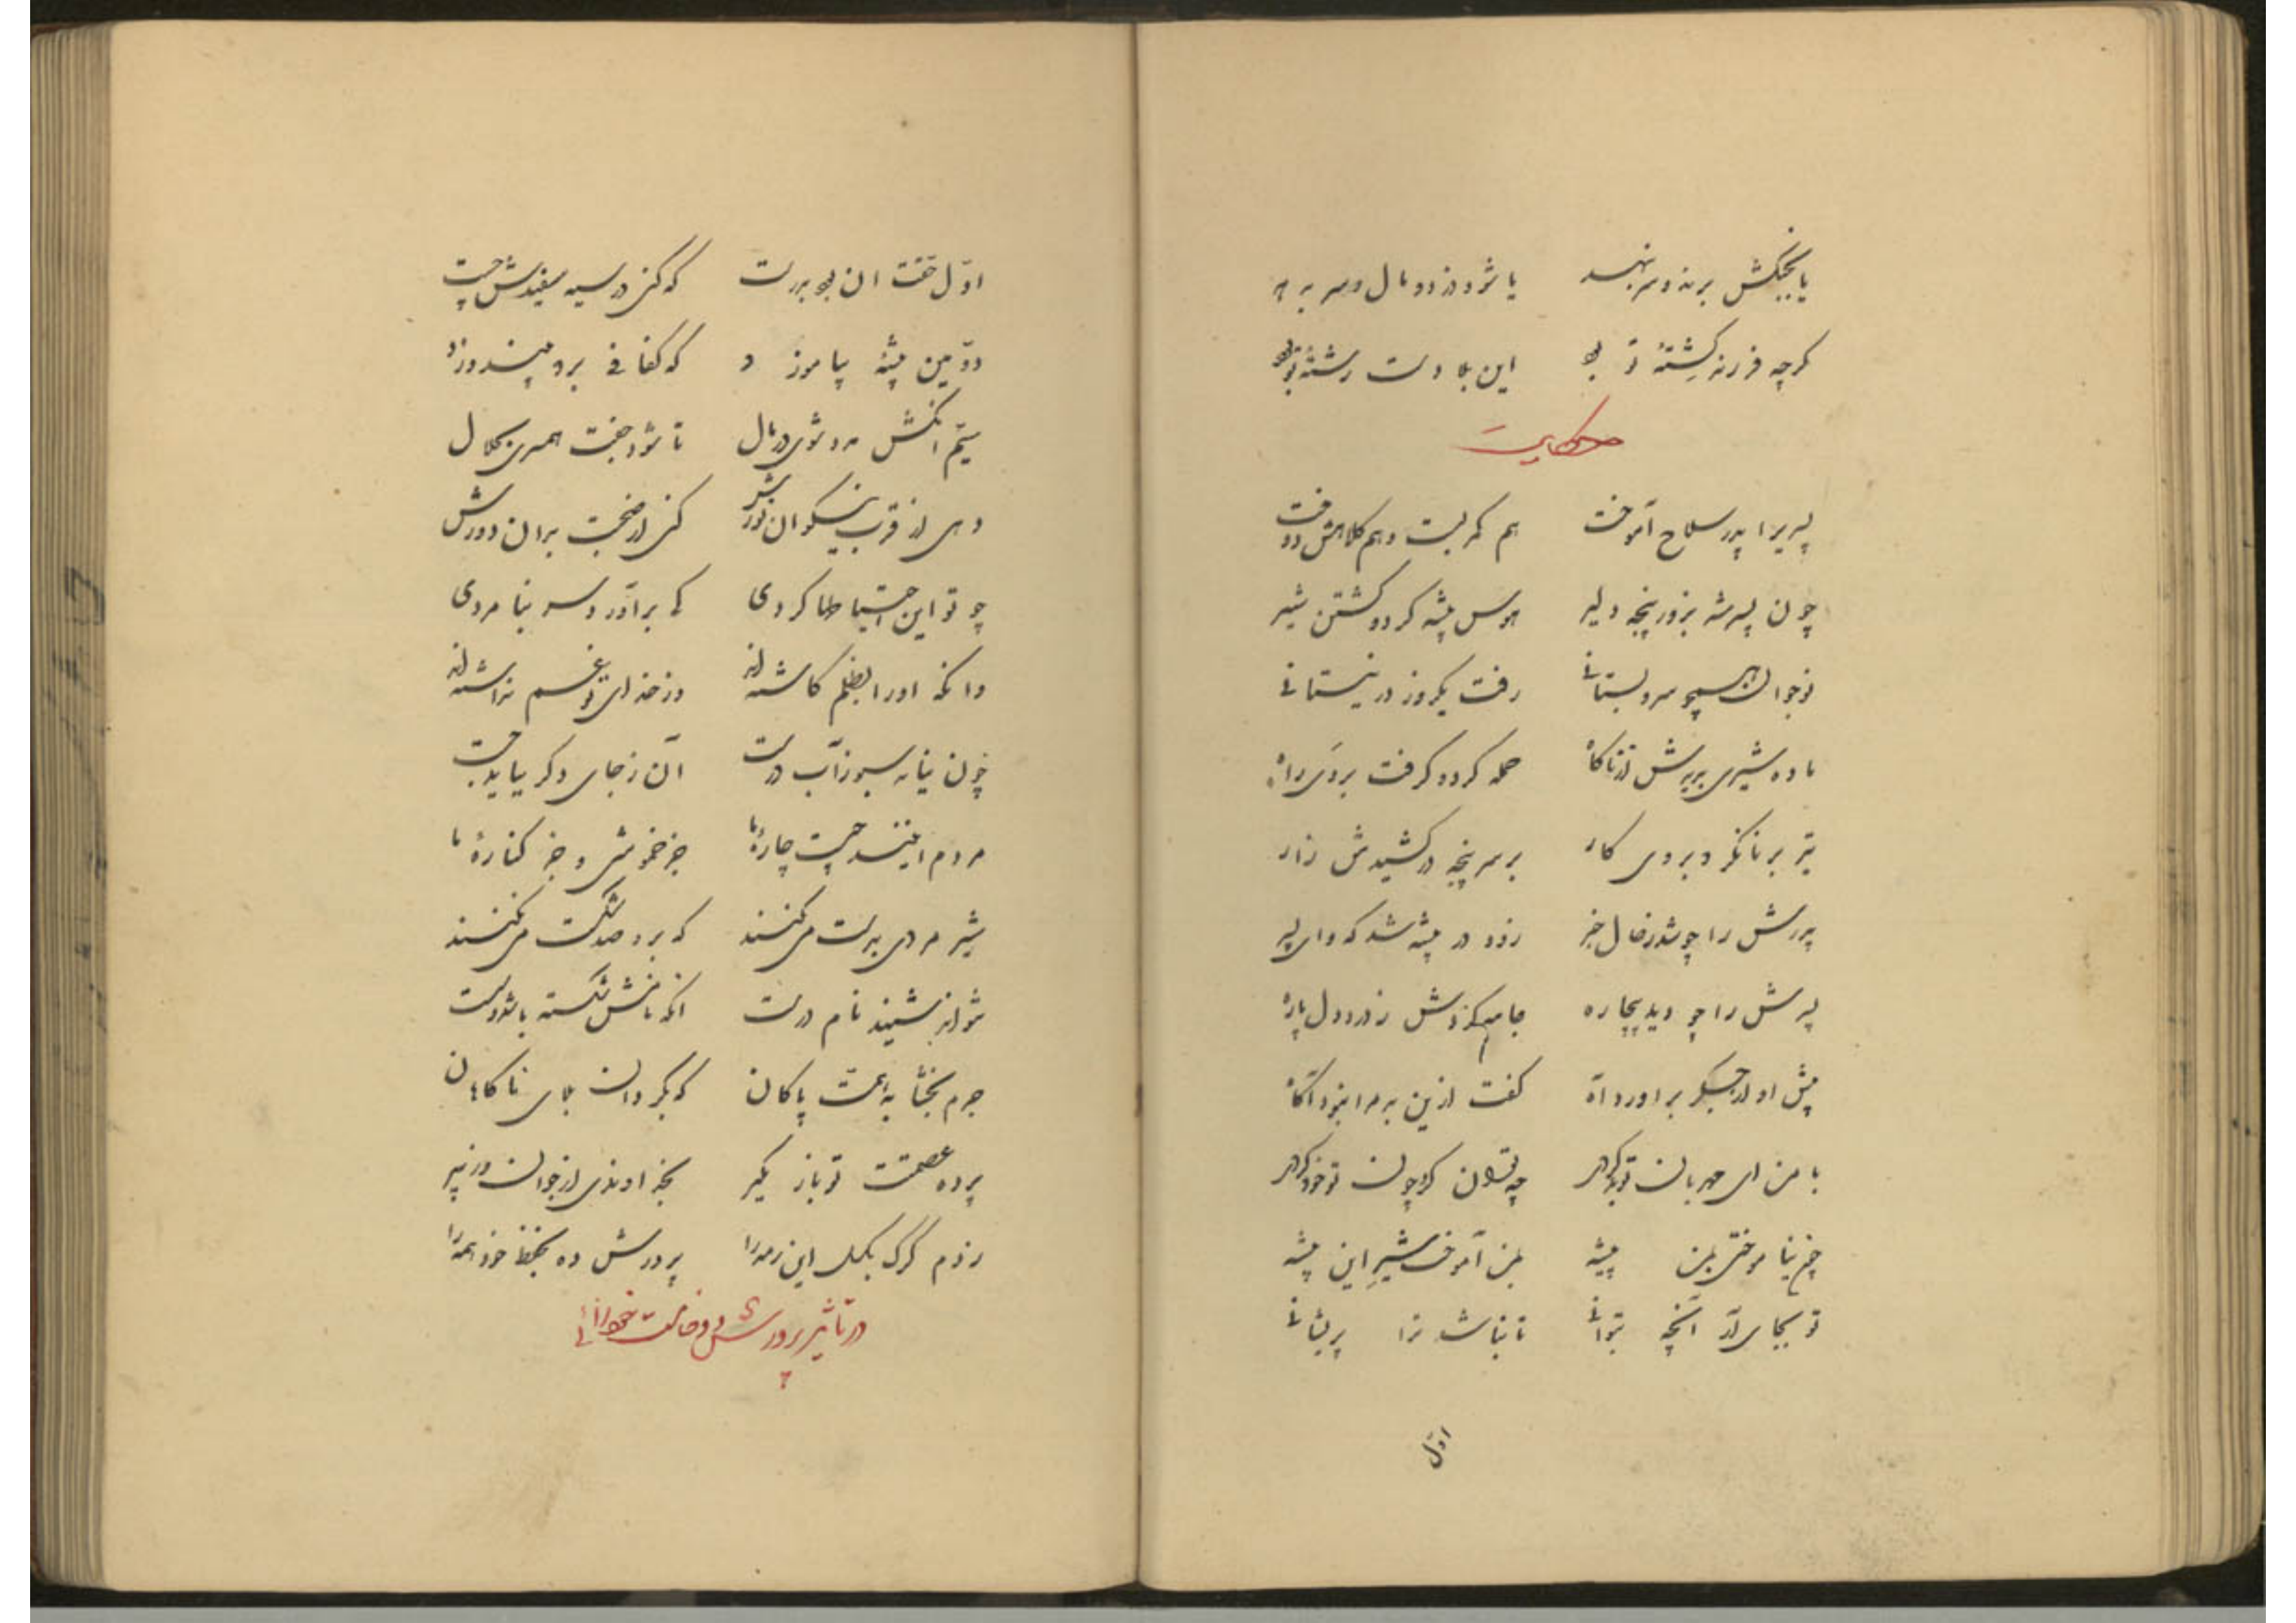 یا بجنگش برند و سر بنهد یا شود دزد و مال و سر بدهد
گرچه فرزند کشتهٔ تو بود این بلا دست رشتهٔ تو بود
حکایت
پسریرا پدر سلاح آموخت هم کمر بست و هم کلاهش دوخت
چون پسر شد بزور پنجه دلیر هوس بیشه کرد و کشتن شیر
نوجوان همچو سرو بستانی رفت یکروز در نیستانی
ماده شیری بر پرش از ناگاه حمله کرد و گرفت بر وی راه
تیز برنا نکرد بر وی کار بر سر پنجه در کشیدش زار
پدرش را چو شد ز حال خبر زود در بیشه شد که وای پسر
پسرش را چو دید بیچاره جامه کردش ز درد دل پاره
پیش او از جگر برآورد آه گفت ازین به مرا نبود آگاه
با من ای مهربان تو بد کردی چه توان کرد چون تو خود کردی
چون نیاموختی بمن پیشه بمن آموخت شیر این پیشه
تو بجای آر آنچه بتوانی تا نباشد ترا پریشانی
اول
اوّل جفت ان بود بدرست که کنی در سیه سفیدش چست
دوّمین پیشهٔ بیاموزد که کفافی برد چو بیندوزد
سیّم انکش مدد شوی در مال تا شود جفت همسری بحلال
دهی از قرب نیکوان نورش کنی از صحبت بدان دورش
چو تو این احتیاطها کردی کی برآورد سر بنامردی
وانکه او را بظلم کاشته‌اند وز خدای تو غم نداشته‌اند
چون نیاید سبو ز آب درست آن ز جای دگر بباید جست
مردم اینند چیست چارهٔ ما جز خموشی و جز کنارهٔ ما
شیر مردی بدست می‌کنند که برو صد شکست می‌کنند
شواند شنید نام درست انکه نامش شکسته باشد و سست
جرم بخشا به همت پاکان که بگردان بلای ناگاهان
پرده عصمتت تو باز مگیر بخداوندی از جوان و ز پیر
از دم گرگ بگسل این رمه را پرورش ده بحفظ خود همه را
در تأثیر پرورش و خاصیت